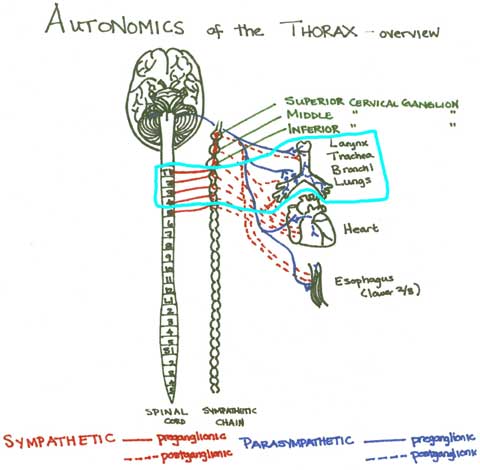 AUTONOMICS of the THORAX - overview
SUPERIOR CERVICAL GANGLION
MIDDLE " "
INFERIOR " "
Larynx
Trachea
Bronchi
Lungs
Heart
Esophagus
(lower 2/3)
T1
2
3
4
5
6
7
8
9
10
11
12
L1
2
3
4
5
S1
2
3
4
5
SPINAL CORD
SYMPATHETIC CHAIN
SYMPATHETIC — preganglionic
--- postganglionic
PARASYMPATHETIC — preganglionic
--- postganglionic